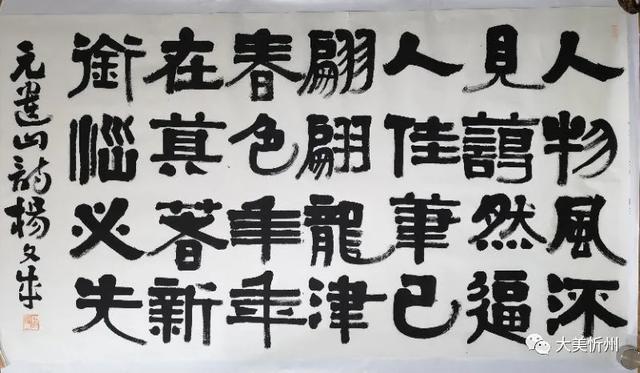 人物風流
見藹然逼
人佳筆已
翩翩龍津
春色年年
在莫著新
銜惱必先
元遺山詩楊文成
大美忻州